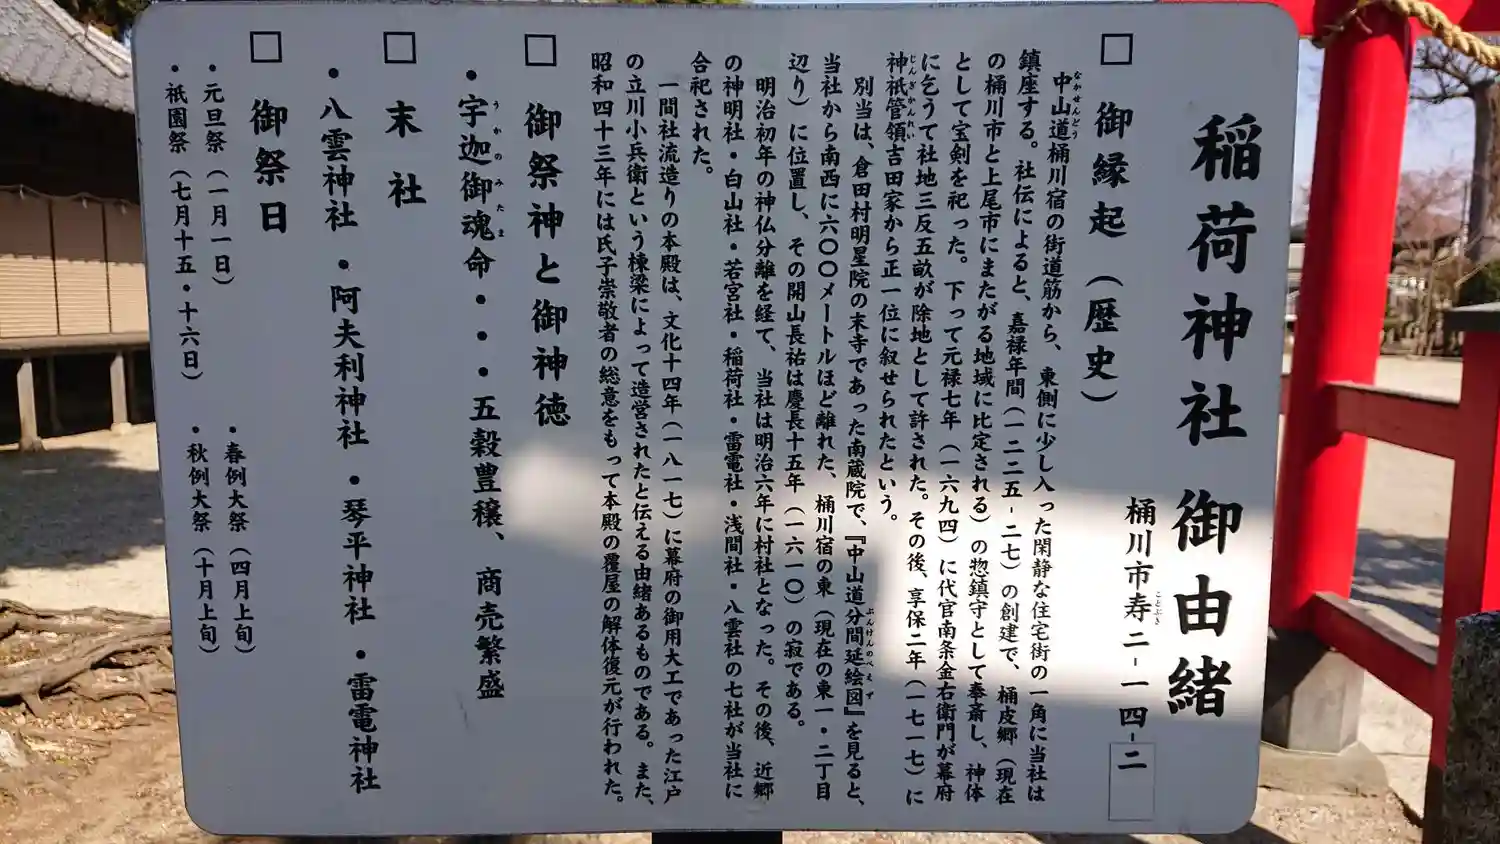 稲荷神社 御由緒
桶川市寿二-一四-二
ことぶき
□ 御縁起（歴史）
中山道桶川宿の街道筋から、東側に少し入った閑静な住宅街の一角に当社は
なかせんどう
鎮座する。社伝によると、嘉禄年間（一二二五-二七）の創建で、桶皮郷（現在
の桶川市と上尾市にまたがる地域に比定される）の惣鎮守として奉斎し、神体
として宝剣を祀った。下って元禄七年（一六九四）に代官南条金右衛門が幕府
に乞うて社地三反五畝が除地として許された。その後、享保二年（一七一七）に
神祇管領吉田家から正一位に叙せられたという。
じんぎかんれい
別当は、倉田村明星院の末寺であった南蔵院で、『中山道分間延絵図』を見ると、
ぶんけんのべえず
当社から南西に六〇〇メートルほど離れた、桶川宿の東（現在の東一・二丁目
辺り）に位置し、その開山長祐は慶長十五年（一六一〇）の寂である。
明治初年の神仏分離を経て、当社は明治六年に村社となった。その後、近郷
の神明社・白山社・若宮社・稲荷社・雷電社・浅間社・八雲社の七社が当社に
合祀された。
一間社流造りの本殿は、文化十四年（一八一七）に幕府の御用大工であった江戸
の立川小兵衛という棟梁によって造営されたと伝える由緒あるものである。また、
昭和四十三年には氏子崇敬者の総意をもって本殿の覆屋の解体復元が行われた。
□ 御祭神と御神徳
・宇迦御魂命・・・五穀豊穣、商売繁盛
うかのみたま
□ 末社
・八雲神社 ・阿夫利神社 ・琴平神社 ・雷電神社
□ 御祭日
・元旦祭（一月一日） ・春例大祭（四月上旬）
・祇園祭（七月十五・十六日） ・秋例大祭（十月上旬）